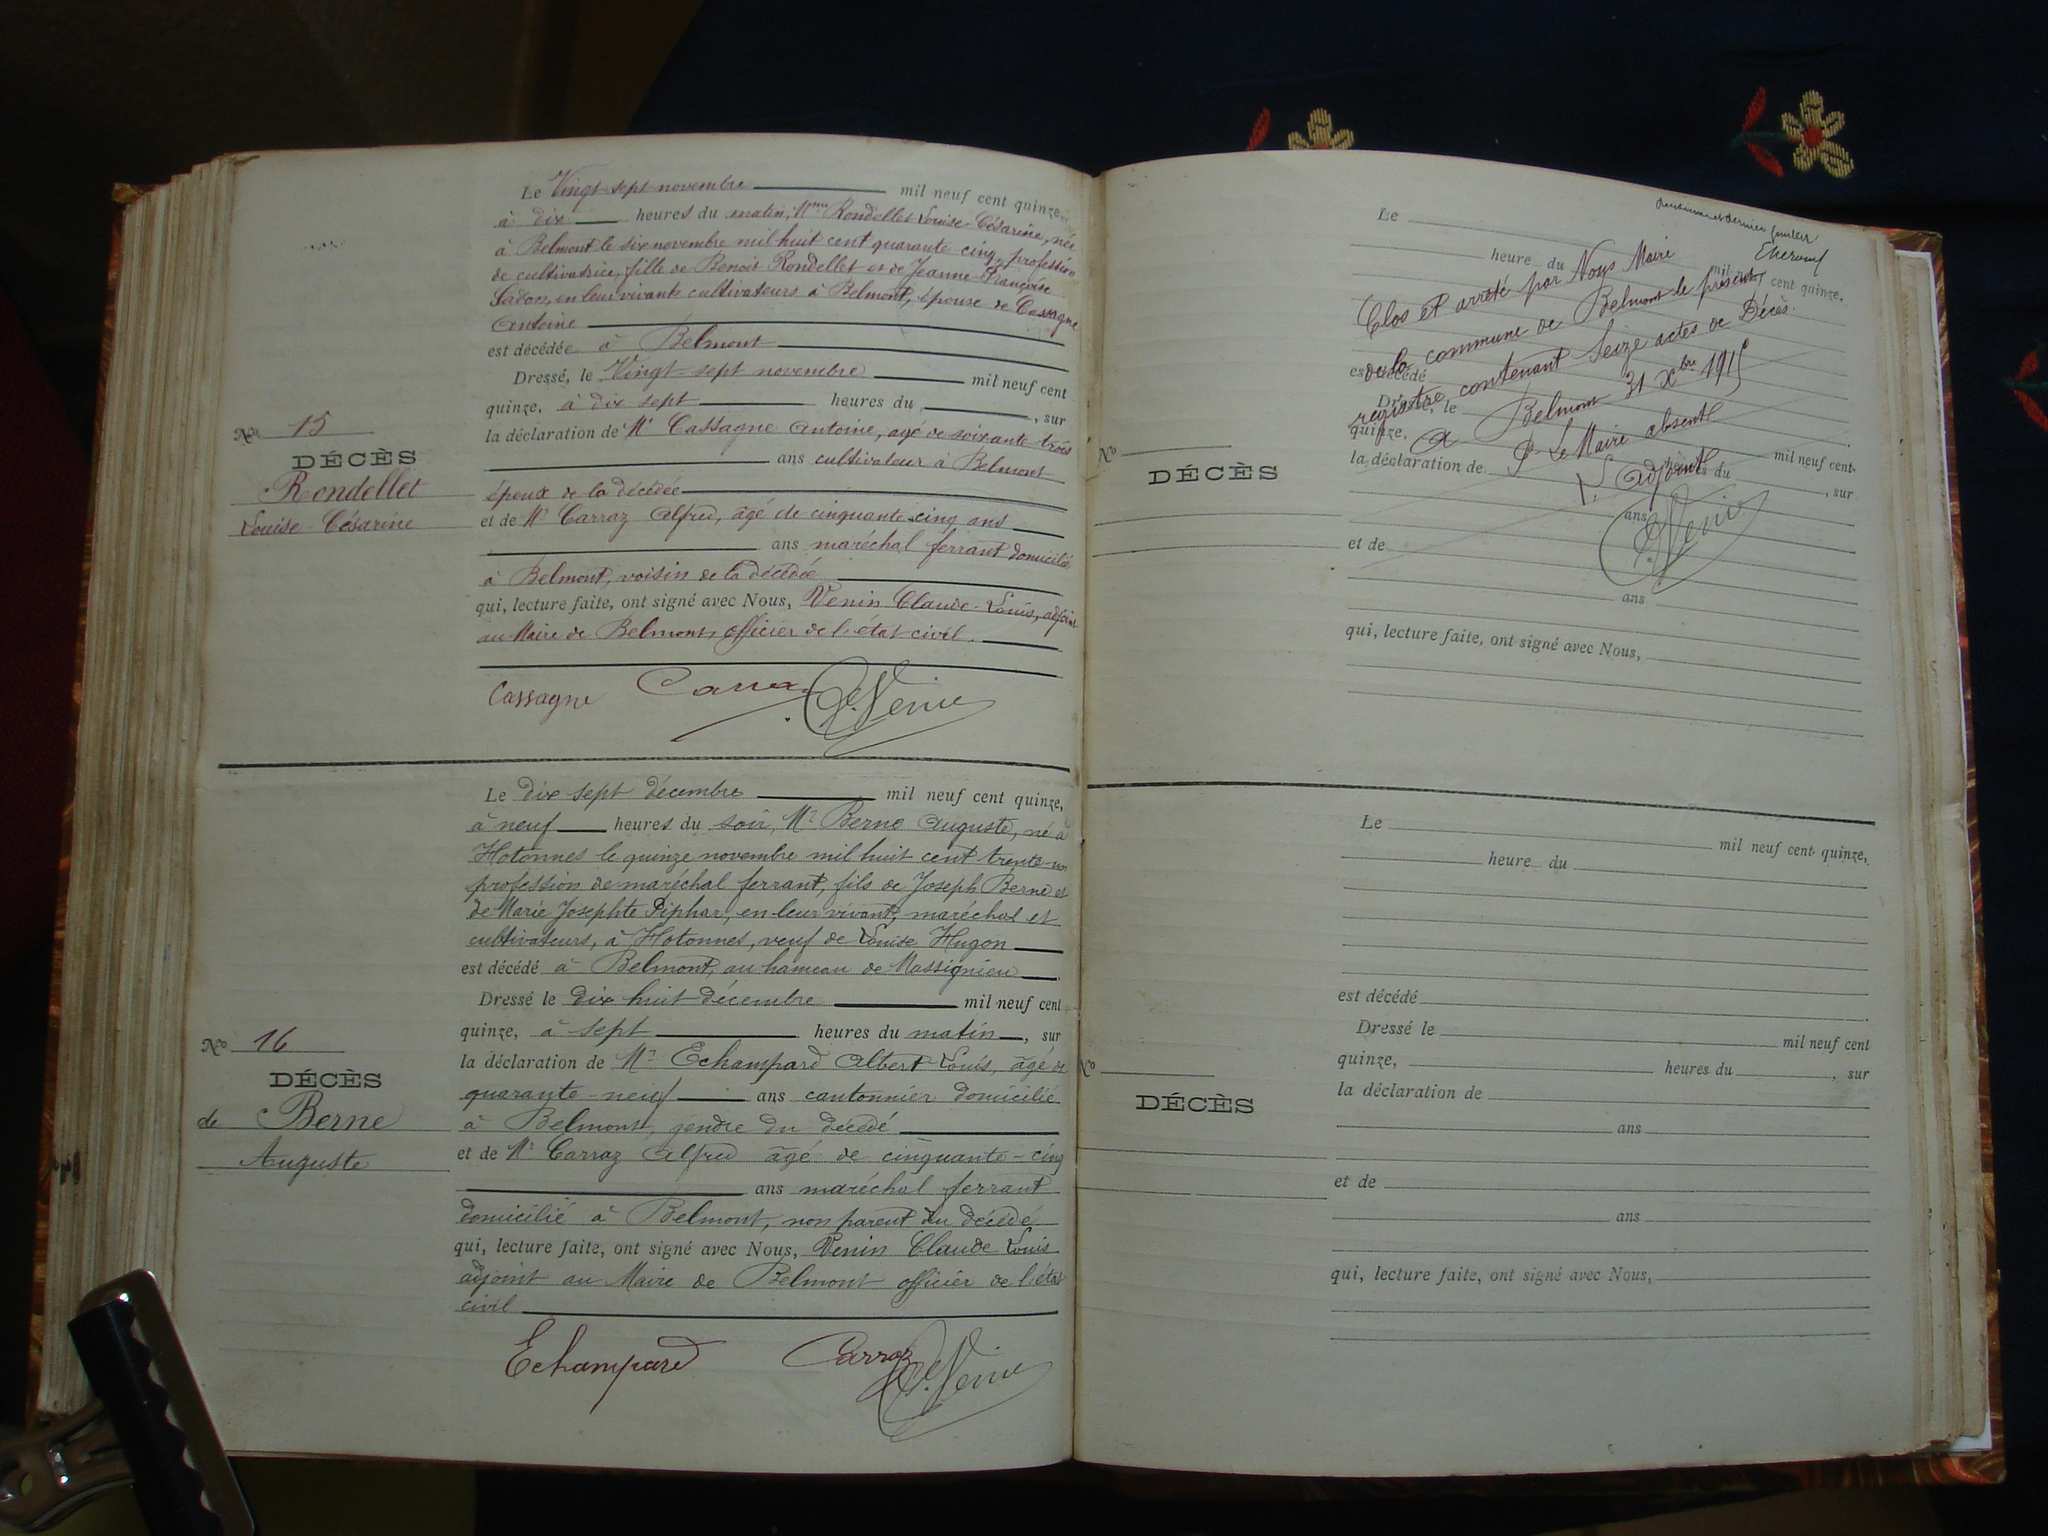 Le Vingt-sept novembre mil neuf cent quinze,
à dix heures du matin, Mme Rondellet Louise-Césarine, née
à Belmont le six novembre mil huit cent quarante cinq, profession
de cultivatrice, fille de Benoit Rondellet et de Jeanne-Françoise
en leur vivants cultivateurs à Belmont, épouse de Cassagne
Antoine
est décédée à Belmont
Dressé, le Vingt-sept novembre mil neuf cent
quinze, à dix sept heures du , sur
la déclaration de Mr Cassagne Antoine, agé de soixante trois
ans cultivateur à Belmont
époux de la décédée
et de Mr Carraz Alfred, âgé de cinquante-cinq ans
ans maréchal ferrant domicilié
à Belmont, voisin de la décédée
qui, lecture faite, ont signé avec Nous, Venin Claude-Louis, adjoint
au Maire de Belmont, officier de l'état civil.
Cassagne Carraz Venin
No 15
DÉCÈS
Rondellet
Louise-Césarine
Le dix sept décembre mil neuf cent quinze,
à neuf heures du soir, Mr Berne Auguste, né à
Hotonnes le quinze novembre mil huit cent trente-un
profession de maréchal ferrant, fils de Joseph Berne et
de Marie Josephte Piphar, en leur vivant, maréchal et
cultivateurs, à Hotonnes, veuf de Louise Hugon
est décédé à Belmont, au hameau de Massignieu
Dressé le dix huit décembre mil neuf cent
quinze, à sept heures du matin, sur
la déclaration de Mr Echampard Albert Louis, âgé de
quarante-neuf ans cantonnier domicilié
à Belmont, gendre du décédé
et de Mr Carraz Alfred âgé de cinquante-cinq
ans maréchal ferrant
domicilié à Belmont, non parent du décédé
qui, lecture faite, ont signé avec Nous, Venin Claude Louis
adjoint au Maire de Belmont officier de l'état
civil
Echampard Carraz Venin
No 16
DÉCÈS
de Berne
Auguste
dernier feuillet
Le mil neuf cent quinze,
heure du
Clos et arrêté par Nous Maire
de la commune de Belmont le présent
registre contenant Seize actes de Décès.
A Belmont 31 Xbre 1915
P. Le Maire absent
L'adjoint
Venin
est décédé
Dressé, le mil neuf cent
quinze, heures du , sur
la déclaration de
ans
et de
ans
qui, lecture faite, ont signé avec Nous,
No
DÉCÈS
Le mil neuf cent quinze,
heure du
est décédé
Dressé le mil neuf cent
quinze, heures du , sur
la déclaration de
ans
et de
ans
qui, lecture faite, ont signé avec Nous,
No
DÉCÈS